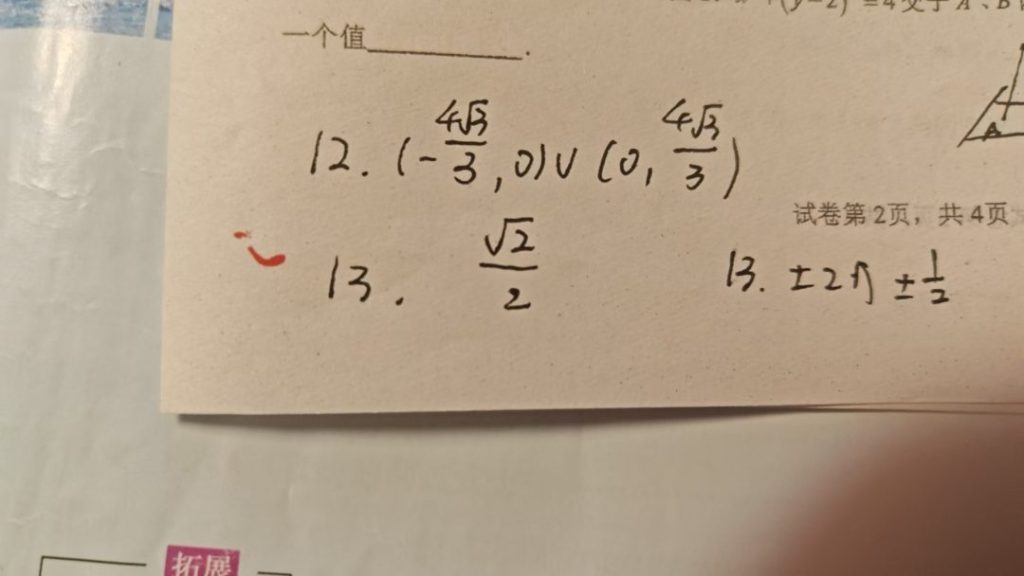 (y-2)²=4交于A、B
一个值________.
12. (-4√3/3, 0)∪(0, 4√3/3)
试卷第2页，共4页
13. √2/2
13. ±2 ±1/2
A
拓展